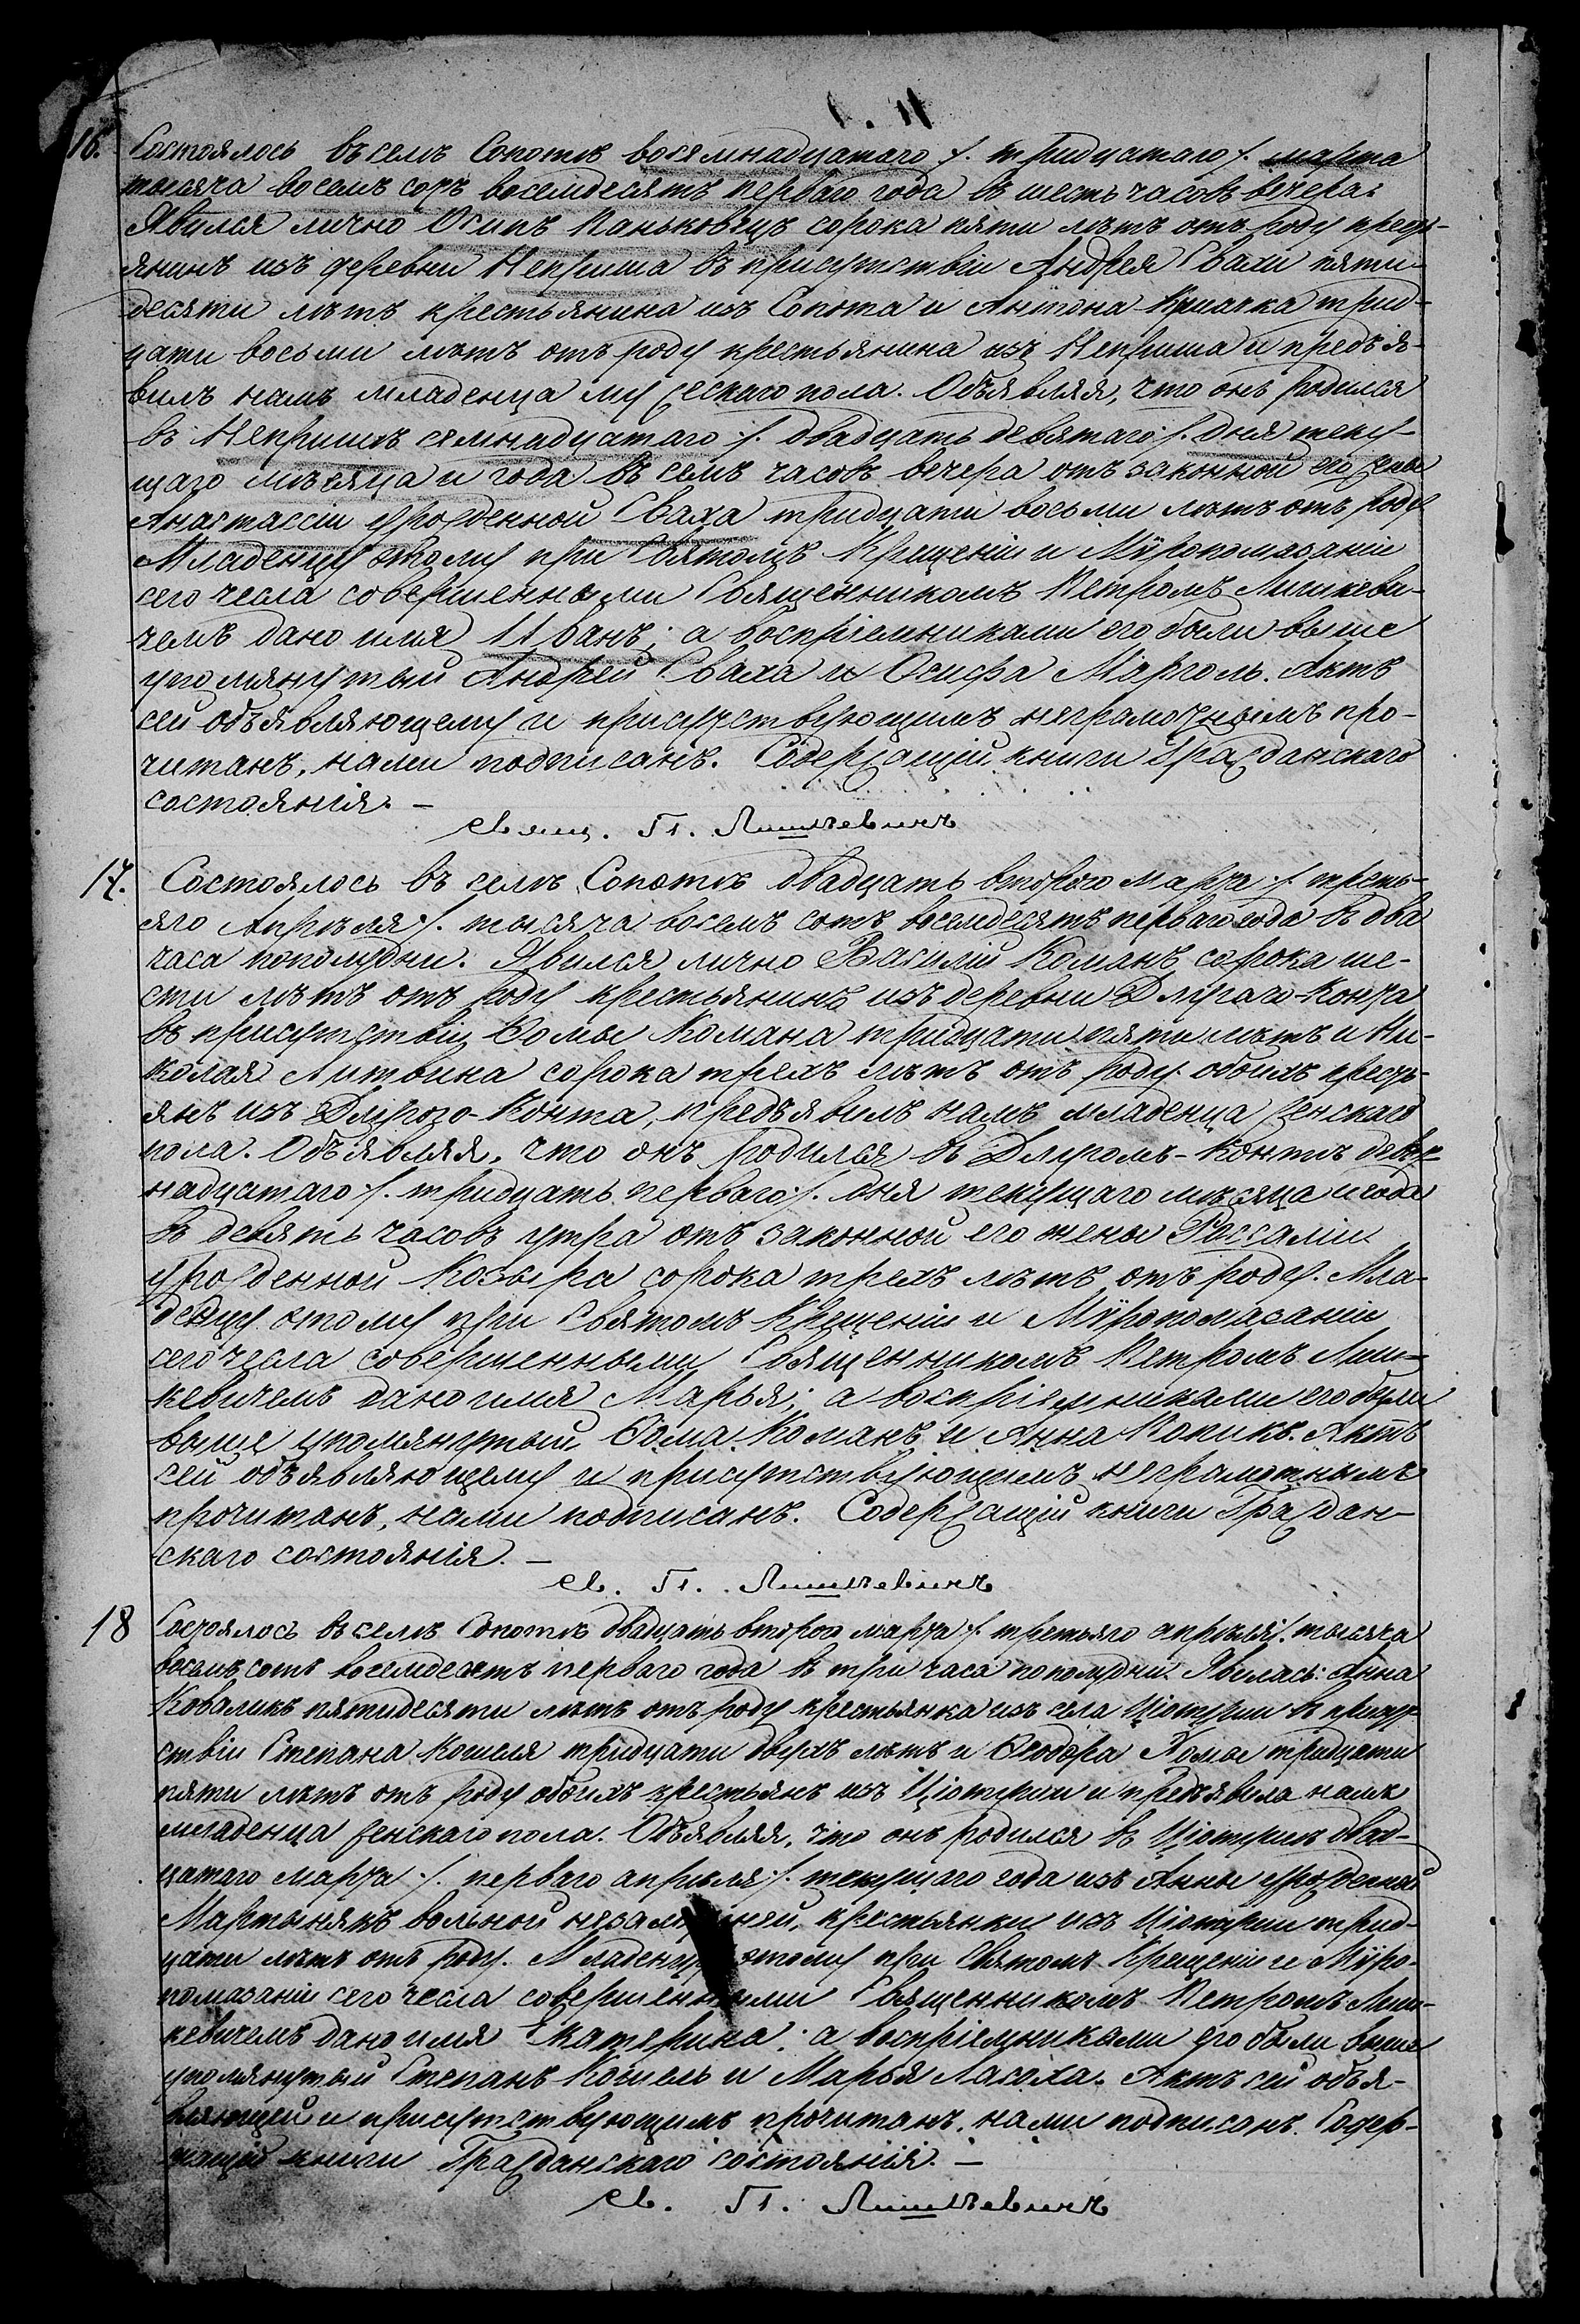 16.
Состоялось въ селѣ Сопотѣ восемнадцатаго /. тридцатаго /. марта
тысяча восемъ сотъ восемдесятъ перваго года въ шесть часовъ вечера.
Явился лично Осипъ Паньковецъ сорока пяти лѣтъ отъ роду кресть-
янинъ изъ деревни Неприша въ присутствіи Андрея Свахи пяти-
десяти лѣтъ крестьянина изъ Сопота и Антона трид-
цати восьми лѣтъ отъ роду крестьянина изъ Неприша и предъя-
вилъ намъ младенца мужескаго пола. Объявляя, что онъ родился
въ Непришѣ семнадцатаго /. двадцать девятаго /. дня теку-
щаго мѣсяца и года въ семь часовъ вечера отъ законной его жены
Анастассіи урожденной Сваха тридцати восьми лѣтъ отъ роду
Младенцу этому при Святомъ Крещеніи и Мѵропомазаніи
сего числа совершенными Священникомъ Петромъ Лишкеви-
чемъ дано имя Иванъ; а воспріемниками его были выше
упомянутый Андрей Сваха и Осифа Марголь. Актъ
сей объявляющему и присутствующимъ неграмотнымъ про-
читанъ, нами подписанъ. Содержащій книги Гражданскаго
состоянія. —
Свящ. П. Лишкевичъ
17.
Состоялось въ селѣ Сопотѣ двадцать втораго Марта /. треть-
яго Апрѣля /. тысяча восемъ сотъ восемдесятъ перваго года въ два
часа пополудни. Явился лично Василій Команъ сорока ше-
сти лѣтъ отъ роду крестьянинъ изъ деревни Длугаго-Конта
въ присутствіи Ѳомы Комана тридцати пяти лѣтъ и Ни-
колая Литвина сорока трехъ лѣтъ отъ роду обоихъ кресть-
янъ изъ Длугого-Конта, предъявилъ намъ младенца женскаго
пола. Объявляя, что онъ родился въ Длугомъ-Контѣ девят-
надцатаго /. тридцать перваго /. дня текущаго мѣсяца и года
въ девять часовъ утра отъ законной его жены Россаліи
урожденной Козыра сорока трехъ лѣтъ отъ роду. Мла-
денцу этому при Святомъ Крещеніи и Мѵропомазаніи
сего числа совершенными Священникомъ Петромъ Лиш-
кевичемъ дано имя Марья; а воспріемниками его были
выше упомянутый Ѳома Команъ и Анна Копикъ. Актъ
сей объявляющему и присутствующимъ неграмотнымъ
прочитанъ, нами подписанъ. Содержащій книги Граждан-
скаго состоянія. —
Св. П. Лишкевичъ
18
Состоялось въ селѣ Сопотѣ двадцать втораго марта /. третьяго апрѣля /. тысяча
восемъ сотъ восемдесятъ перваго года въ три часа пополудни. Явилась: Анна
Коваликъ пятидесяти лѣтъ отъ роду крестьянка изъ села Ціотуши въ присут-
ствіи Степана Кошеля тридцати двухъ лѣтъ и Ѳеодора Хомы тридцати
пяти лѣтъ отъ роду обоихъ крестьянъ изъ Ціотуши и предъявила намъ
младенца женскаго пола. Объявляя, что онъ родился въ Ціотушѣ двад-
цатаго марта /. перваго апрѣля /. текущаго года изъ Анны урожденной
Мартынякъ вольной незамужней, крестьянки изъ Ціотуши трид-
цати лѣтъ отъ роду. Младенцу этому при Святомъ Крещеніи и Мѵро-
помазаніи сего числа совершенными Священникомъ Петромъ Лиш-
кевичемъ дано имя Екатерина; а воспріемниками его были выше
упомянутый Степанъ Кошель и Марья Ласоха. Актъ сей объя-
вляющей и присутствующимъ прочитанъ, нами подписанъ. Содер-
жащій книги Гражданскаго состоянія. —
Св. П. Лишкевичъ